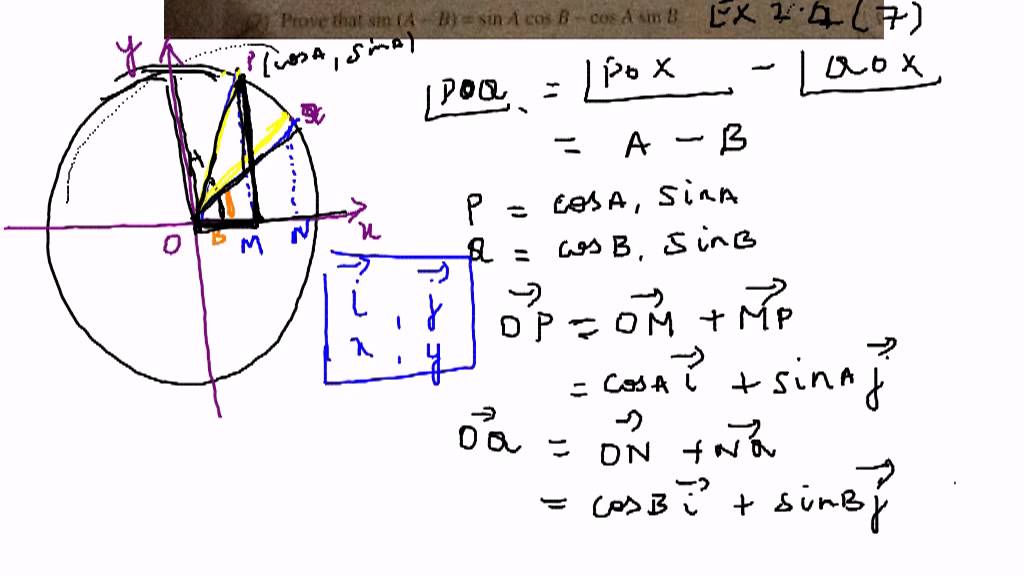 Prove that sin (A − B) = sin A cos B − cos A sin B
Ex 2.4 (7)
y
P (cosA, sinA)
Q
A
O B M N x
∠POQ = ∠POX − ∠QOX
= A − B
P = cosA, sinA
Q = cosB, sinB
i⃗ , j⃗
x , y
OP⃗ = OM⃗ + MP⃗
= cosA i⃗ + sinA j⃗
OQ⃗ = ON⃗ + NQ⃗
= cosB i⃗ + sinB j⃗